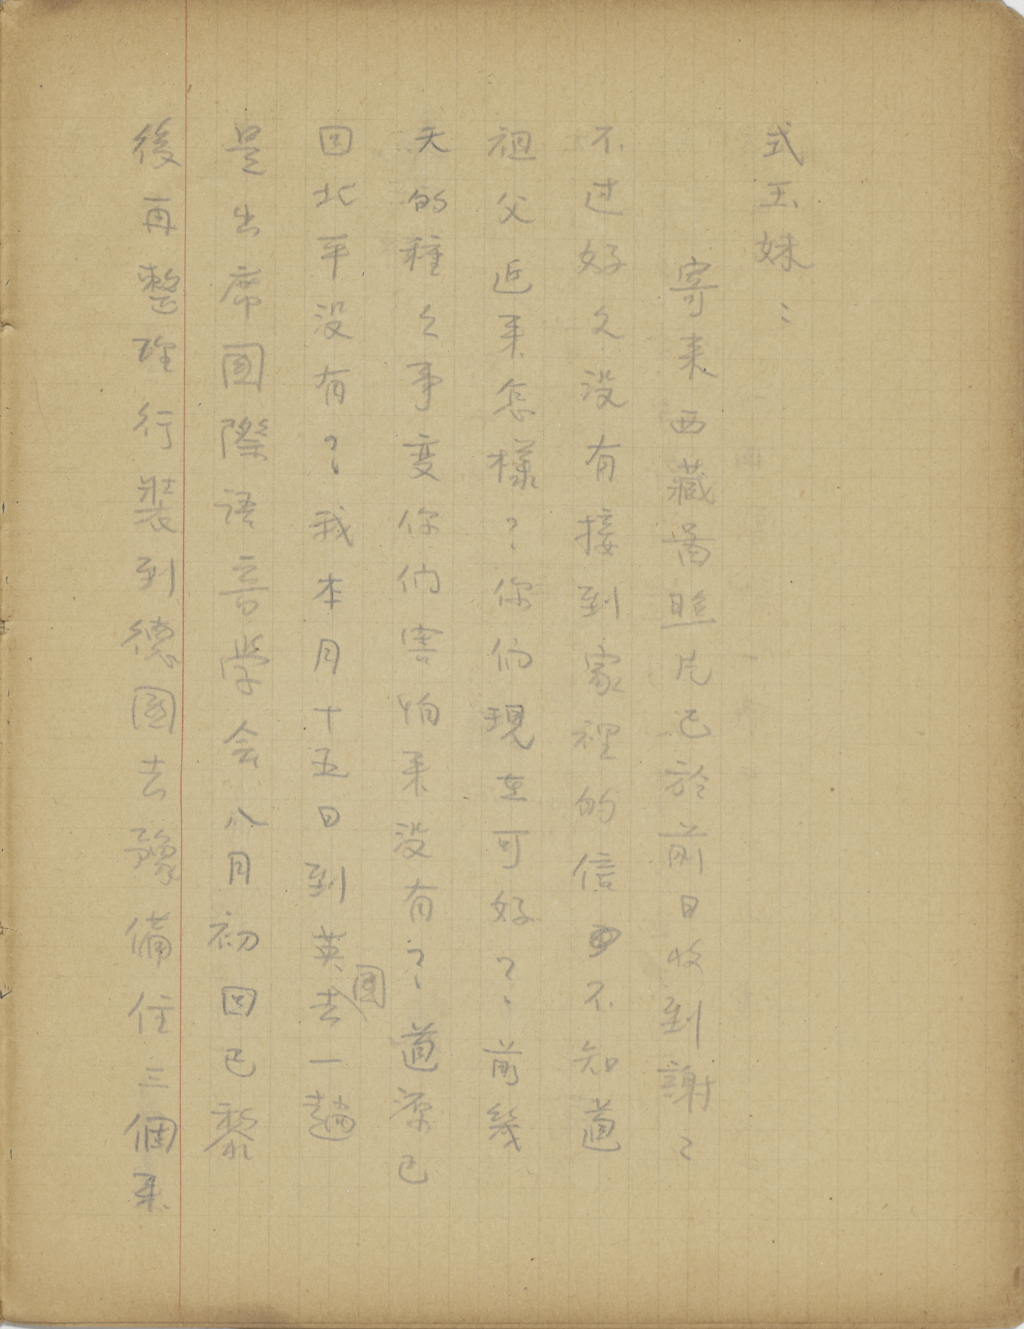 式玉妹：
寄来西藏啚照片已於前日收到謝々
不过好久没有接到家裡的信不知道
祖父近来怎樣？你们現在可好？前幾
天的種々事变你们害怕来没有？道深已
回北平没有？我本月十五日到英國去一趟
是出席国際语音学会八月初回巴黎
後再整理行裝到德國去豫備住三個来